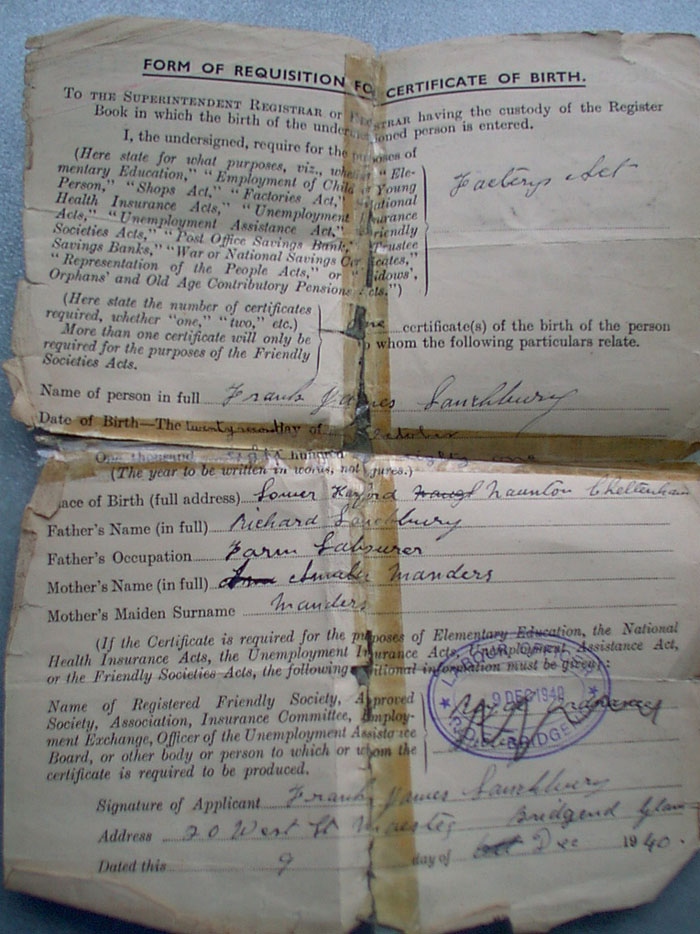 FORM OF REQUISITION FO CERTIFICATE OF BIRTH.
To THE SUPERINTENDENT REGISTRAR or REGISTRAR having the custody of the Register
Book in which the birth of the undermentioned person is entered.
I, the undersigned, require for the purposes of
(Here state for what purposes, viz., whether "Ele-
mentary Education," "Employment of Child or Young
Person," "Shops Act," "Factories Act," National
Health Insurance Acts, "Unemployment Insurance
Acts," "Unemployment Assistance Act," Friendly
Societies Acts," "Post Office Savings Bank," Trustee
Savings Banks," "War or National Savings Certificates,"
"Representation of the People Acts," or "Widows',
Orphans' and Old Age Contributory Pensions Acts.")
Factorys Act
(Here state the number of certificates
required, whether "one," "two," etc.)
More than one certificate will only be
required for the purposes of the Friendly
Societies Acts.
One certificate(s) of the birth of the person
to whom the following particulars relate.
Name of person in full Frank James Sanchbury
Date of Birth—The twenty second day of October
One thousand eight hundred eighty one
(The year to be written in words, not figures.)
Place of Birth (full address) Lower Harford Naunton Cheltenham
Father's Name (in full) Richard Sanchbury
Father's Occupation Farm Labourer
Mother's Name (in full) Manders
Mother's Maiden Surname Manders
(If the Certificate is required for the purposes of Elementary Education, the National
Health Insurance Acts, the Unemployment Insurance Acts, Unemployment Assistance Act,
or the Friendly Societies Acts, the following additional information must be given:
Name of Registered Friendly Society, Approved
Society, Association, Insurance Committee, Employ-
ment Exchange, Officer of the Unemployment Assistance
Board, or other body or person to which or whom the
certificate is required to be produced.
9 DEC 1940
BRIDGEND
Signature of Applicant Frank James Sanchbury
Address 20 West St Maesteg Bridgend Glam
Dated this 9 day of Dec 1940.